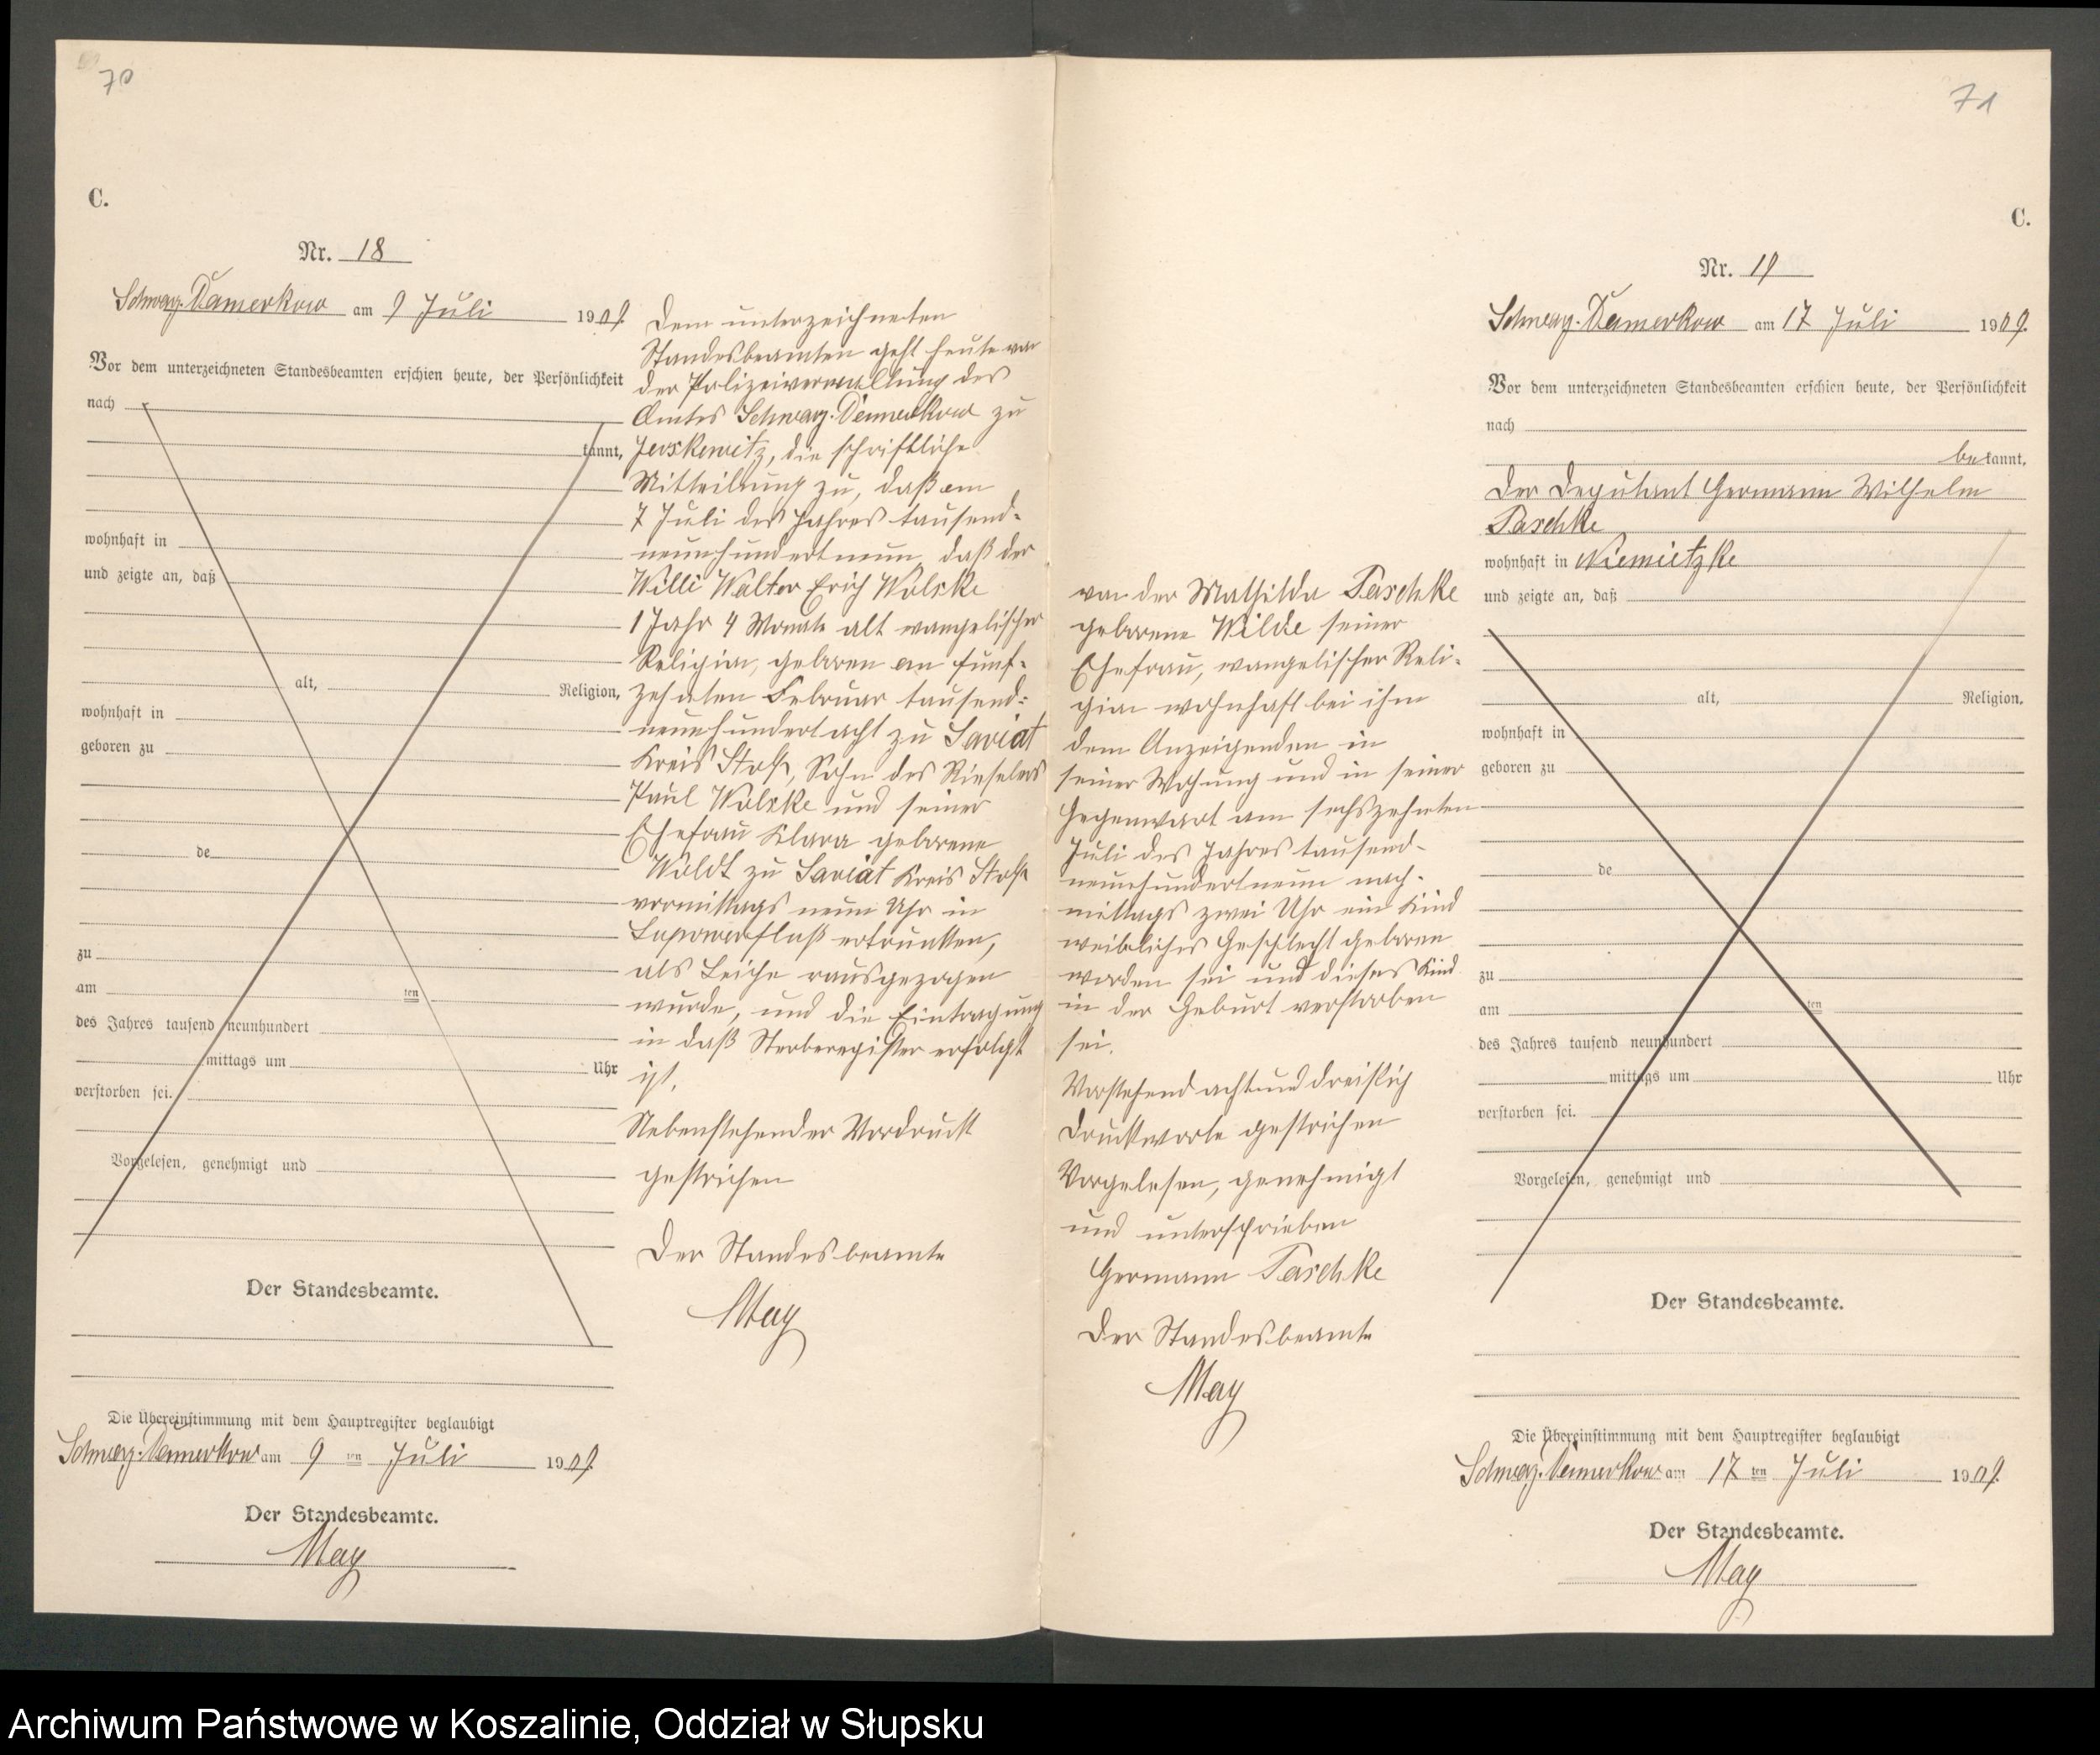 70
C.
Nr. 18
Schwarz-Damerkow am 9 Juli 1909.
Vor dem unterzeichneten Standesbeamten erschien heute, der Persönlichkeit
nach
kannt,
wohnhaft in
und zeigte an, daß
alt, Religion,
wohnhaft in
geboren zu
de
zu
am ten
des Jahres tausend neunhundert
mittags um Uhr
verstorben sei.
Vorgelesen, genehmigt und
Der Standesbeamte.
Die Übereinstimmung mit dem Hauptregister beglaubigt
Schwarz-Damerkow am 9 ten Juli 1909.
Der Standesbeamte.
May
Dem unterzeichneten
Standesbeamten geht heute von
der Polizeiverwaltung des
Amtes Schwarz-Damerkow zu
Jerskewitz, die schriftliche
Mitteilung zu, daß am
7 Juli des Jahres tausend-
neunhundertneun, daß der
Willi Walter Erich Wolske
1 Jahr 4 Monate alt evangelischer
Religion, geboren am fünf-
zehnten Februar tausend-
neunhundertacht zu Saviat
Kreis Stolp, Sohn des Rieselers
Paul Wolske und seiner
Ehefrau Klara geborene
Woldt zu Saviat Kreis Stolp
vormittags neun Uhr in
Lupowerfluß ertrunken,
als Leiche rausgezogen
wurde, und die Eintragung
in daß Sterberegister erfolgt
ist.
Nebenstehender Vordruck
gestrichen
Der Standesbeamte
May
71
C.
Nr. 19
Schwarz-Damerkow am 17 Juli 1909.
Vor dem unterzeichneten Standesbeamten erschien heute, der Persönlichkeit
nach
bekannt,
der Deputant Hermann Wilhelm
Paschke
wohnhaft in Niemietzke
und zeigte an, daß
von der Mathilde Paschke
geborene Wilke seiner
Ehefrau, evangelischer Reli-
gion wohnhaft bei ihm
dem Anzeigenden in
seiner Wohnung und in seiner
Gegenwart am sechszehnten
Juli des Jahres tausend-
neunhundertneun nach-
mittags zwei Uhr ein Kind
weibliches Geschlecht geboren
worden sei und dieses Kind
in der Geburt verstorben
sei.
Vorstehend achtunddreißig
Druckworte gestrichen
Vorgelesen, genehmigt
und unterschrieben
Hermann Paschke
Der Standesbeamte
May
alt, Religion,
wohnhaft in
geboren zu
de
zu
am ten
des Jahres tausend neunhundert
mittags um Uhr
verstorben sei.
Vorgelesen, genehmigt und
Der Standesbeamte.
Die Übereinstimmung mit dem Hauptregister beglaubigt
Schwarz-Damerkow am 17 ten Juli 1909.
Der Standesbeamte.
May
Archiwum Państwowe w Koszalinie, Oddział w Słupsku